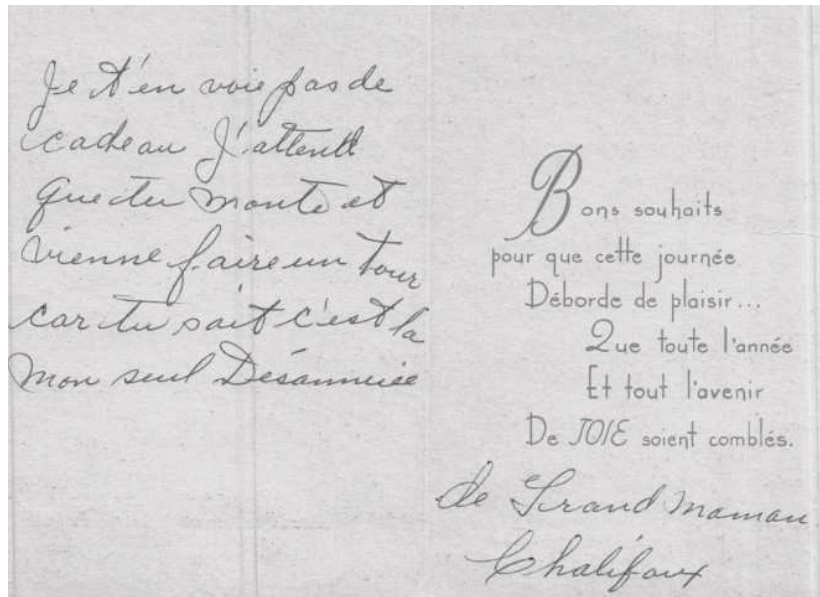 Je t'en voie pas de
cadeau J'attend
que tu monte et
vienne faire un tour
car tu sait c'est la
mon seul Désannuiee
Bons souhaits
pour que cette journée
Déborde de plaisir...
Que toute l'année
Et tout l'avenir
De JOIE soient comblés.
de Grand Maman
Chalifoux